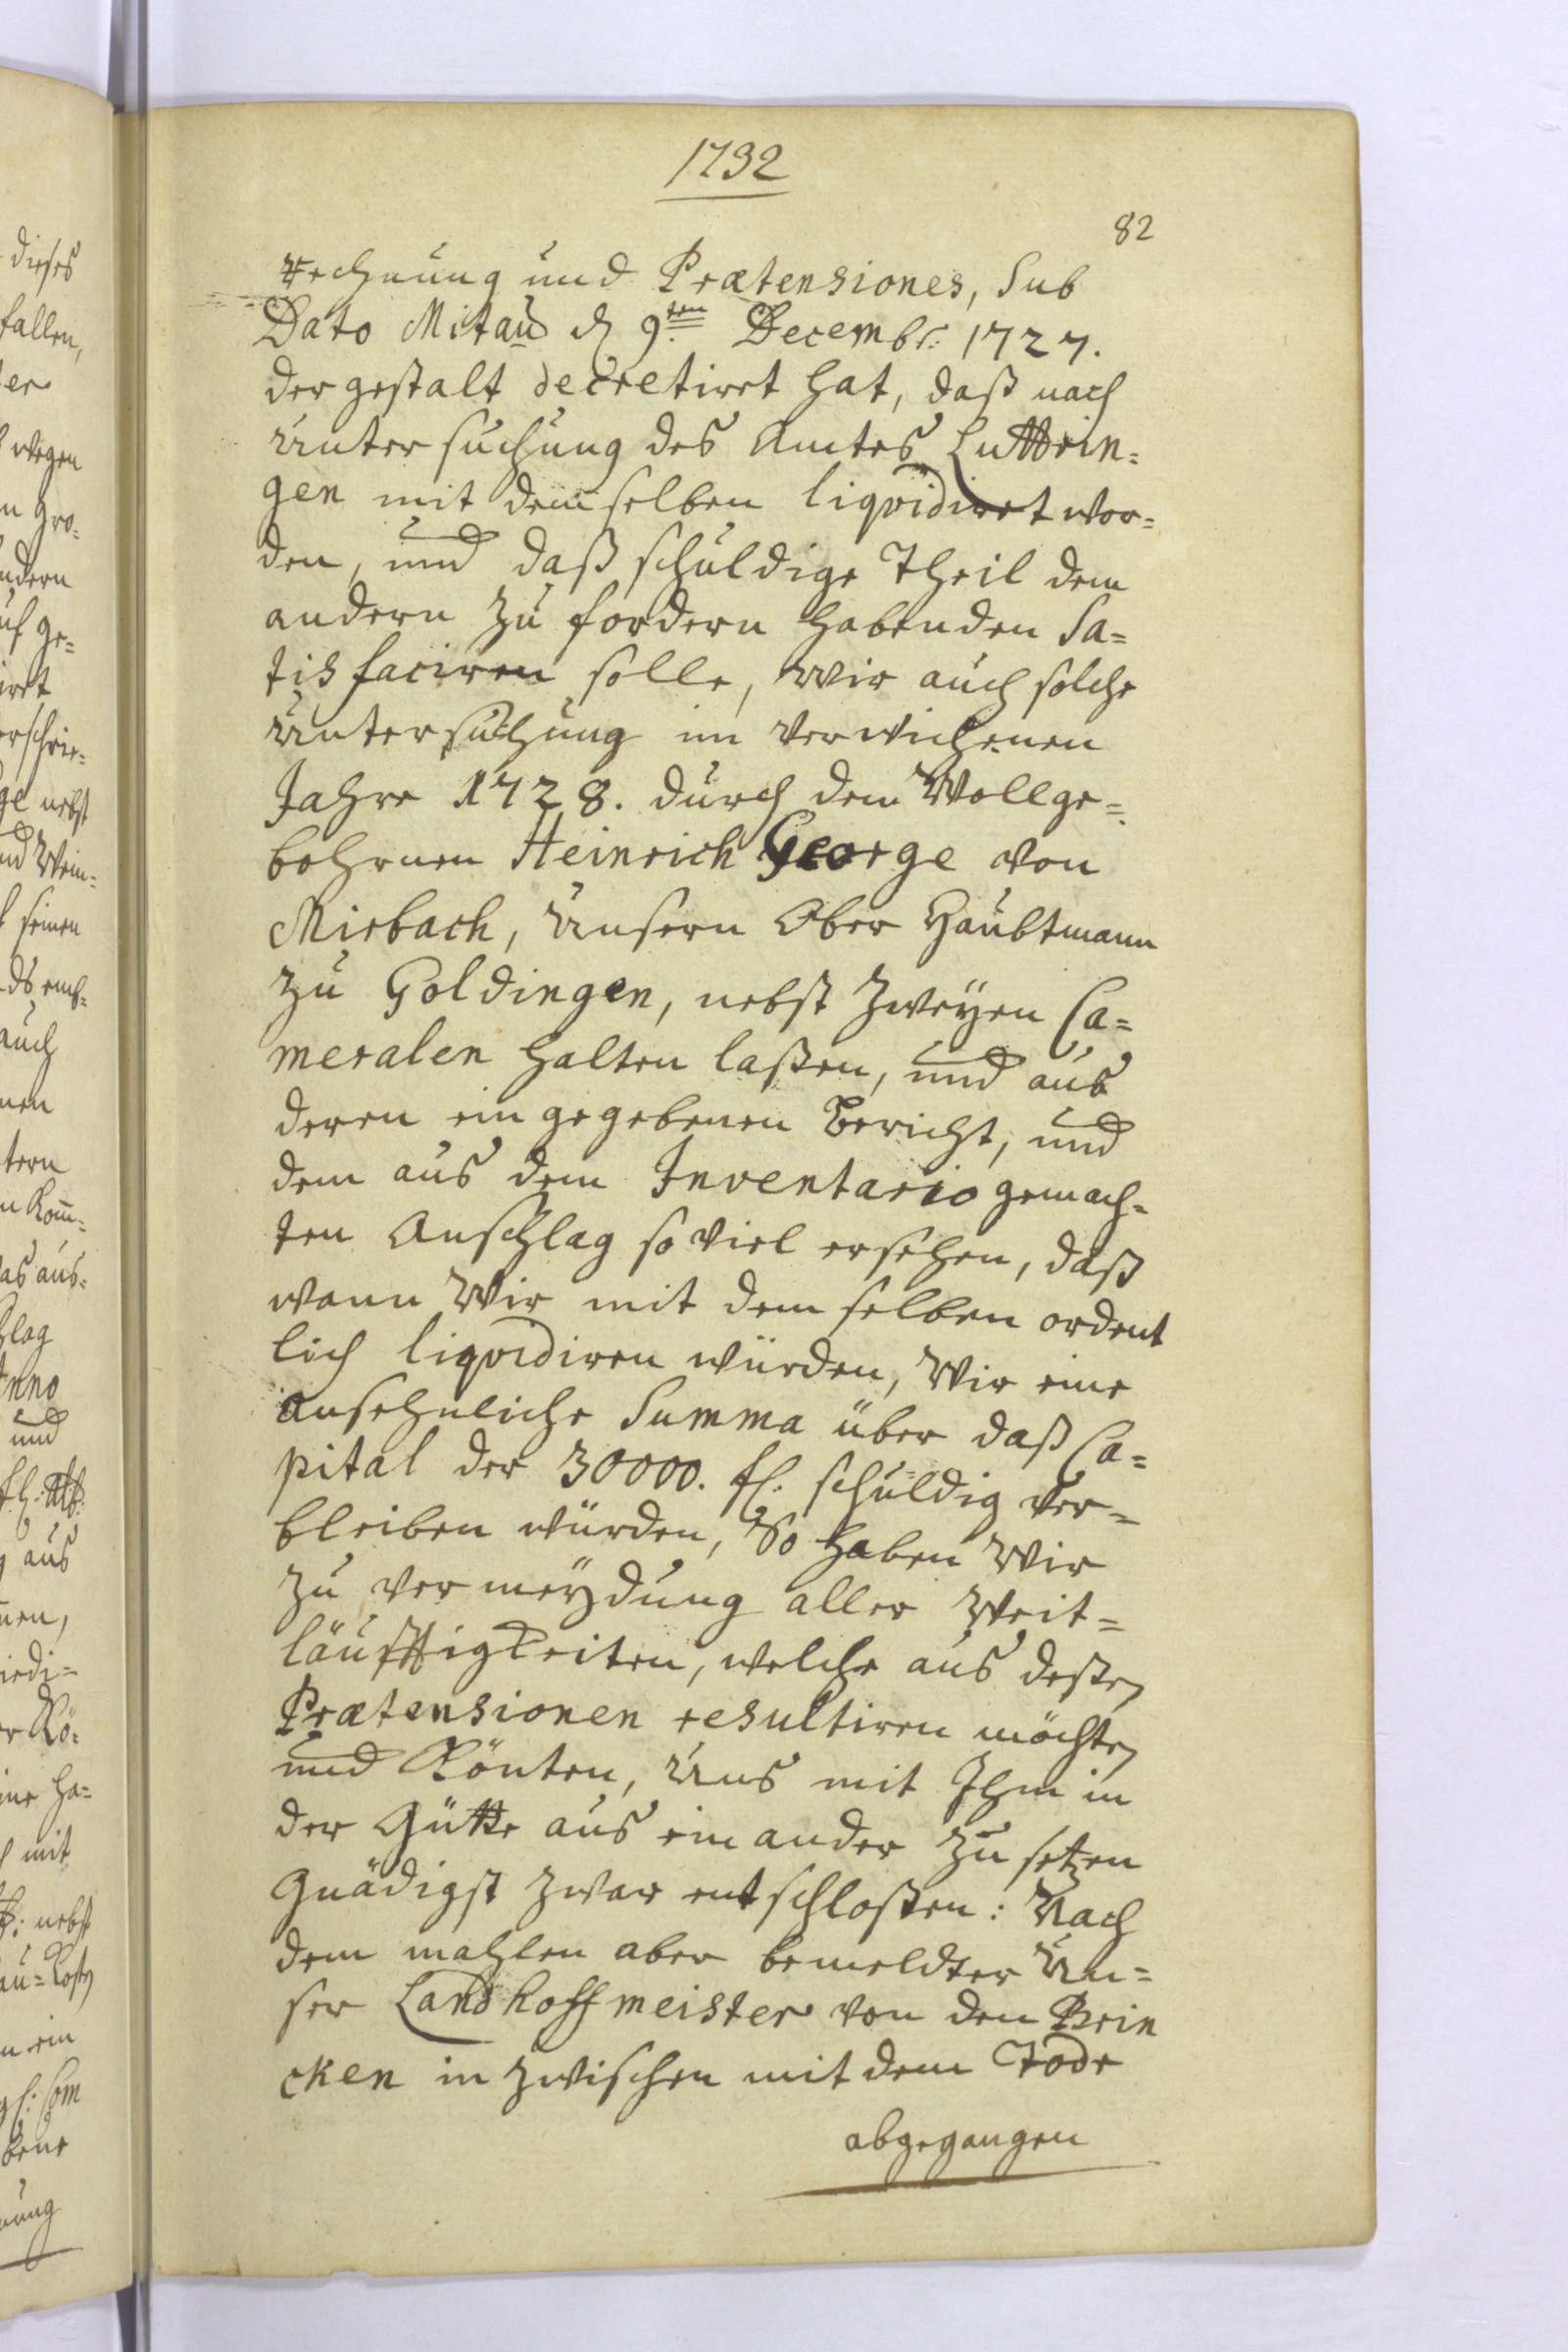 1732
82
rechnung und Prætensiones, Sub
Dato Mitau d 9ten Decembr: 1727.
der gestalt decretiret hat, daß nach
Untersuchung des Amtes Luttrin=
gen mit demselben liqvidiret wor=
den, und daß schuldige Theil dem
andern zu fordern habenden Sa=
tisfaciren solle, Wir auch solche
Untersuchung im verwichenen
Jahre 1728. durch dem Wollge=
bohrnen Heinrich George von
Mirbach, Unsern Ober Haubtmann
zu Goldingen, nebst Zweyen Ca=
meralen halten laßen, und aus
deren ein gegebenen Bericht, und
dem aus dem Inventario gemach=
ten Anschlag so viel ersehen, daß
wann Wir mit dem selben ordent
lich liqvidiren würden, Wir eine
ansehnliche Summa über daß Ca=
pital der 30000. fl: schuldig ver=
bleiben würden, So haben Wir
zu vermeydung aller Weit=
läufftigkeiten, welche aus deßen
Prætensionen resultiren möchten
und Könten, Uns mit Ihm in
der Gütte aus einander zu setzen
Gnädigst zwar entschloßen: Nach
dem mahlen aber bemeldter Un=
ser Landhoffmeister von den Brin
cken in zwischen mit dem Tode
abgegangen
dieses
fallen,
wegen
ndern
nebst
seinen
auch
Anno
und
aus
mit
nebst
ein